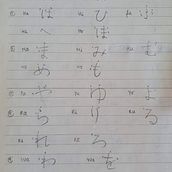 ha は hi ひ hu ふ
he へ ho ほ
ma ま mi み mu む
me め mo も
ya や yu ゆ yo よ
ra ら ri り ru る
re れ ro ろ
wa わ wo を